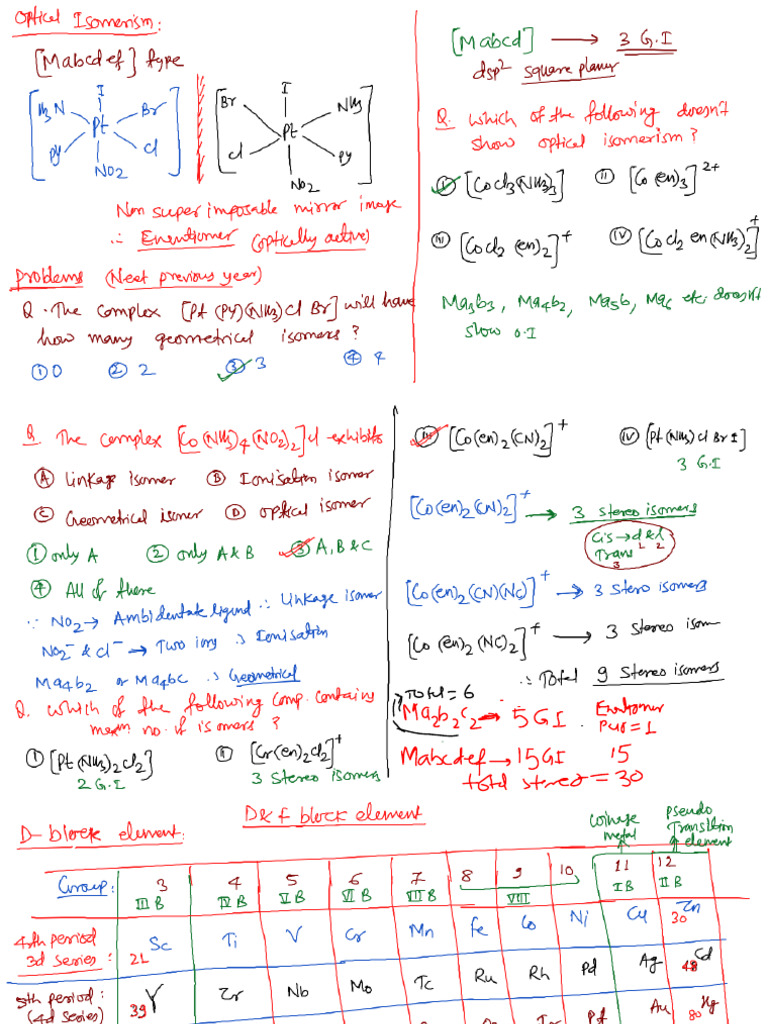 Optical Isomerism:
[Mabcdef] type
I
H3N
Br
Pt
Py
Cl
NO2
I
Br
NH3
Pt
Cl
Py
NO2
Non super imposable mirror image
∴ Enentiomer (optically active)
Problems (Neet previous year)
Q. The complex [Pt (Py)(NH3)Cl Br] will have
how many geometrical isomers?
① 0 ② 2 ③ 3 ④ 4
[Mabcd] → 3 G.I
dsp2 square planer
Q. which of the following doesn't
show optical isomerism?
① [CoCl3(NH3)3] ② [Co (en)3]2+
③ [CoCl2 (en)2]+ ④ [CoCl2 en(NH3)2]+
Ma3b3, Ma4b2, Ma5b, Ma6 etc. doesn't
show O.I
Q. The complex [Co(NH3)4(NO2)2]Cl exhibits
Ⓐ Linkage isomer Ⓑ Ionisation isomer
Ⓒ Geometrical isomer Ⓓ optical isomer
① only A ② only A & B ③ A, B & C
④ All of these
∵ NO2 → Ambidentate ligand ∴ Linkage isomer
NO2- & Cl- → Two ions ∴ Ionisation
Ma4b2 or Ma4bc ∴ Geometrical
Q. which of the following comp. contains
mxm no. of isomers ?
① [Pt(NH3)2Cl2] ② [Cr(en)2Cl2]+
2 G.I 3 Stereo isomers
[Co(en)2(CN)2]+ ④ [Pt(NH3)Cl Br I]
3 G.I
[Co(en)2(CN)2]+ → 3 stereo isomers
Cis → d & l
1 2
Trans
3
[Co(en)2(CN)(NC)]+ → 3 Stero isomers
[Co (en)2(NC)2]+ → 3 Stereo isom
∴ Total 9 Stereo isomers
Total = 6
Ma2b2c2 → 5 GI Enantiomer
Pair = 1
Mabcdef → 15 GI 15
total stereo = 30
D & f block element
D- block element:
coinage
metal
pseudo
Transition
element
Group: 3 4 5 6 7 8 9 10 11 12
III B IV B V B VI B VII B VIII I B II B
4th period
3d series: 21 Sc Ti V Cr Mn Fe Co Ni Cu 30 Zn
5th period:
(4d series) 39 Y Zr Nb Mo Tc Ru Rh Pd Ag 48 Cd
Pt Au 80 Hg